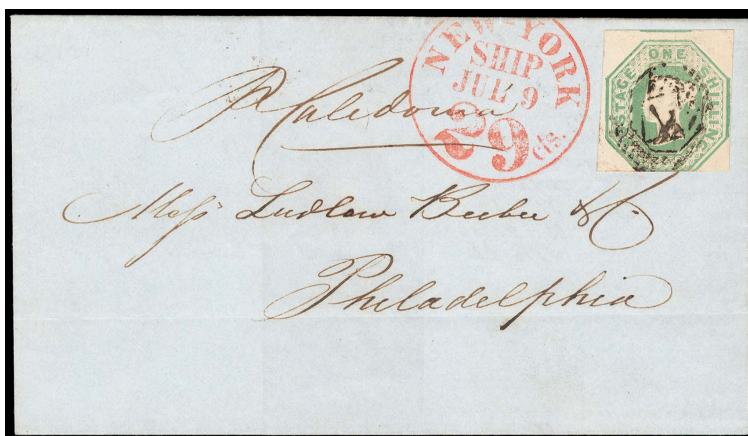 NEW-YORK
SHIP
JUL 9
29 cts.
POSTAGE ONE SHILLING
Pr Caledonia
Mess Ludlow Beebee & Co
Philadelphia